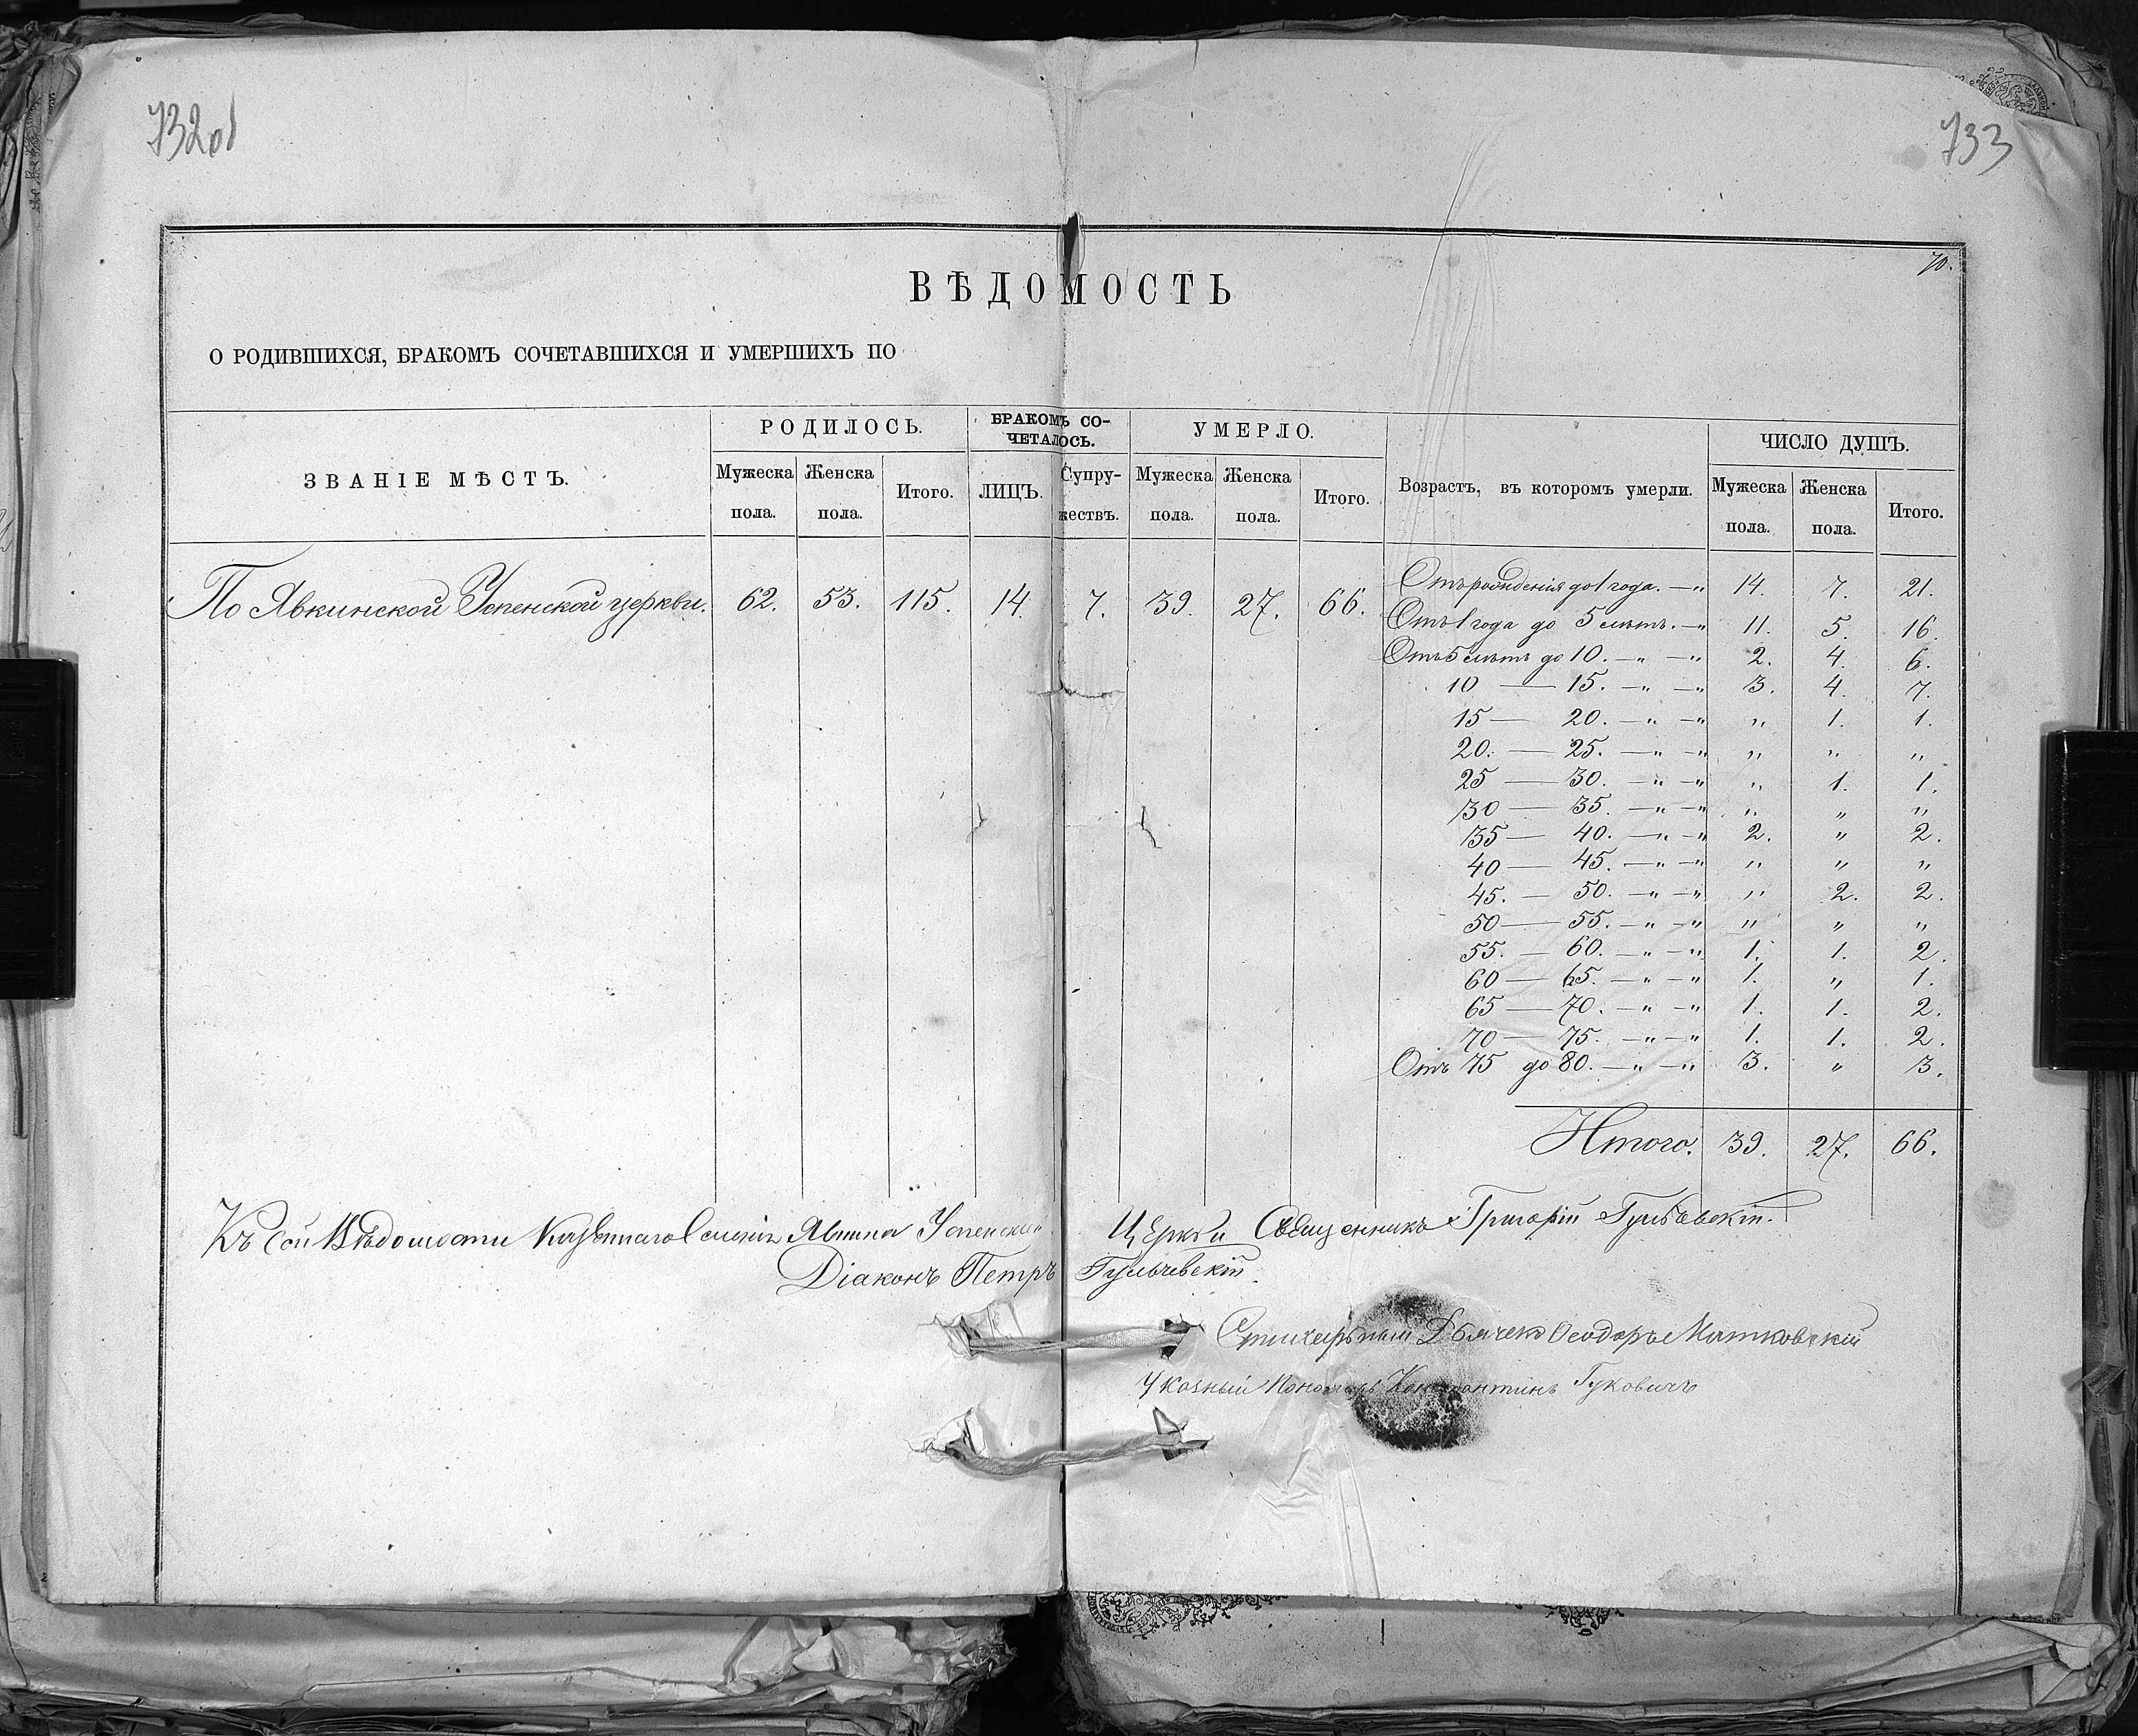 732об
733
70.
ВѢДОМОСТЬ
О РОДИВШИХСЯ, БРАКОМЪ СОЧЕТАВШИХСЯ И УМЕРШИХЪ ПО
ЗВАНІЕ МѢСТЪ. РОДИЛОСЬ. БРАКОМЪ СО-ЧЕТАЛОСЬ. УМЕРЛО. Возрастъ, въ которомъ умерли. ЧИСЛО ДУШЪ.
Мужеска пола. Женска пола. Итого. ЛИЦЪ. Супру-жествъ. Мужеска пола. Женска пола. Итого. Мужеска пола. Женска пола. Итого.
По Явкинской Успенской церкви. 62. 53. 115. 14. 7. 39. 27. 66.
Отъ рожденія до 1 года. — " 14. 7. 21.
Отъ 1 года до 5 лѣтъ. — " 11. 5. 16.
Отъ 5 лѣтъ до 10. — " — " 2. 4. 6.
10 — 15. — " — " 3. 4. 7.
15 — 20. — " — " " 1. 1.
20. — 25. — " — " " " "
25 — 30. — " — " " 1. 1.
30 — 35. — " — " " " "
35 — 40. — " — " 2. " 2.
40 — 45. — " — " " " "
45. — 50. — " — " " 2. 2.
50 — 55. — " — " " " "
55. — 60. — " — " 1. 1. 2.
60 — 65. — " — " 1. " 1.
65 — 70. — " — " 1. 1. 2.
70 — 75. — " — " 1. 1. 2.
Отъ 75 до 80. — " — " 3. " 3.
Итого. 39. 27. 66.
Къ сей Вѣдомости Казеннаго Селенія Явкина Успенской Церкви Священникъ Григорій
Діаконъ Петръ Гульчевскій
Стихарный Дьячекъ Ѳеодоръ Матковскій
Указный Пономарь Константинъ Гуковичъ